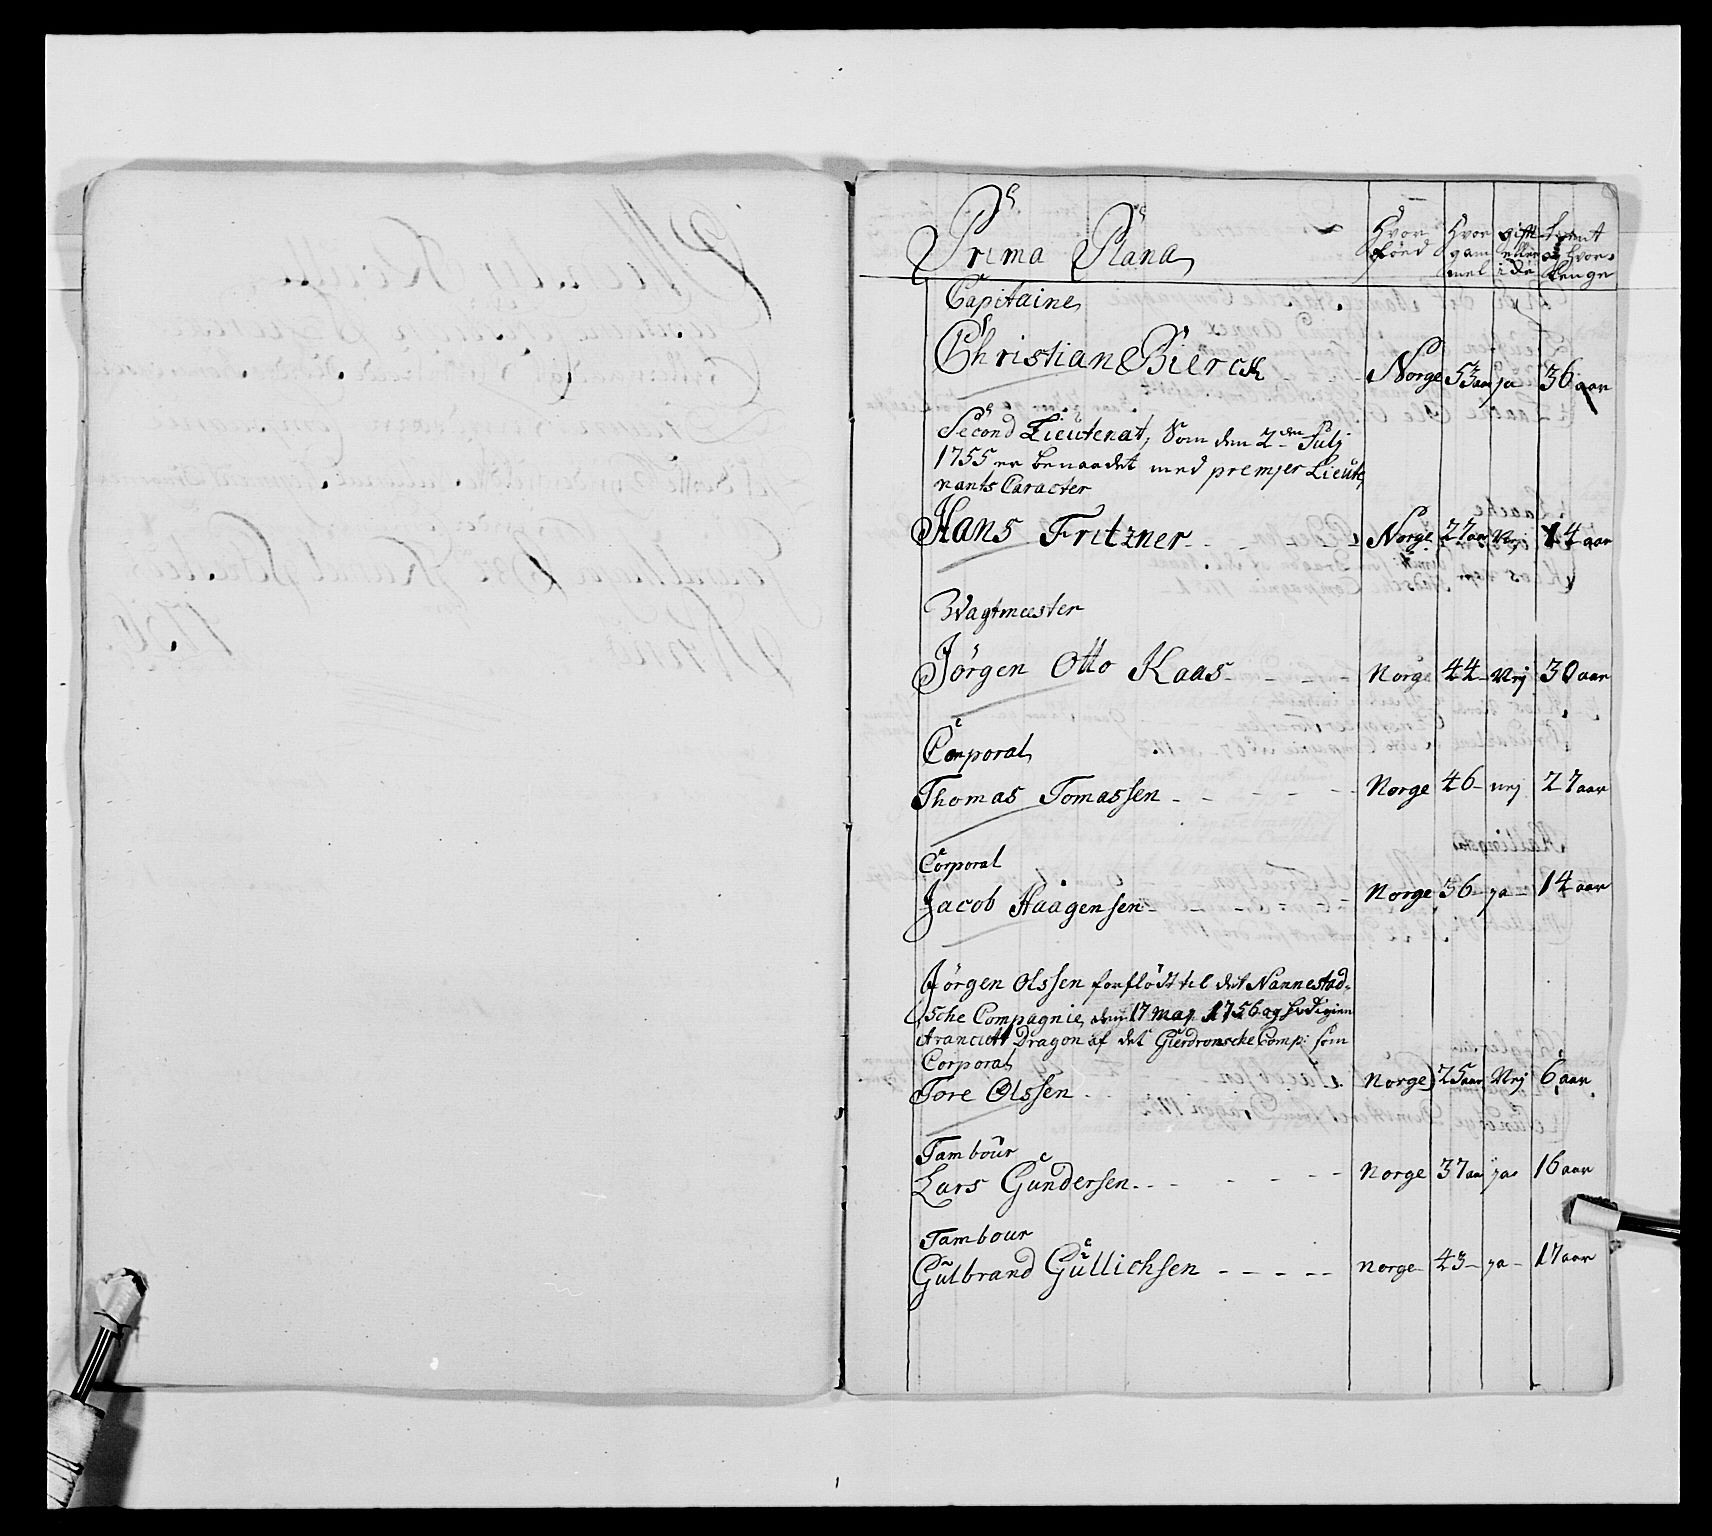 Prima Plana
Hvor föed
Hvor gammel
gift eller ide
tient og hvor lenge
Capitaine
Christian Bierck Norge 53 aar ja 36 aar
Second Lieutenat, Som den 2den Julj
1755 er benaadet med premjer Lieute
nants Caracter
Hans Fritzner Norge 27 aar Urj 14 aar
Wagtmeester
Jörgen Otto Kaas Norge 44 Urj 30 aar
Corporal
Thomas Tomassen Norge 46 urj 27 aar
Corporal
Jacob Haagensen Norge 36 ja 14 aar
Jörgen Olssen forflödt til det Nannestad-
sche Compagnie den 17 maj 1756 og
Dragon af det Gierdromsche Comp: som
Corporal
Tore Olssen Norge 25 aar Urj 6 aar
Tambour
Lars Gundersen Norge 37 aar ja 16 aar
Tambour
Gulbrand Gullichsen Norge 43 ja 17 aar